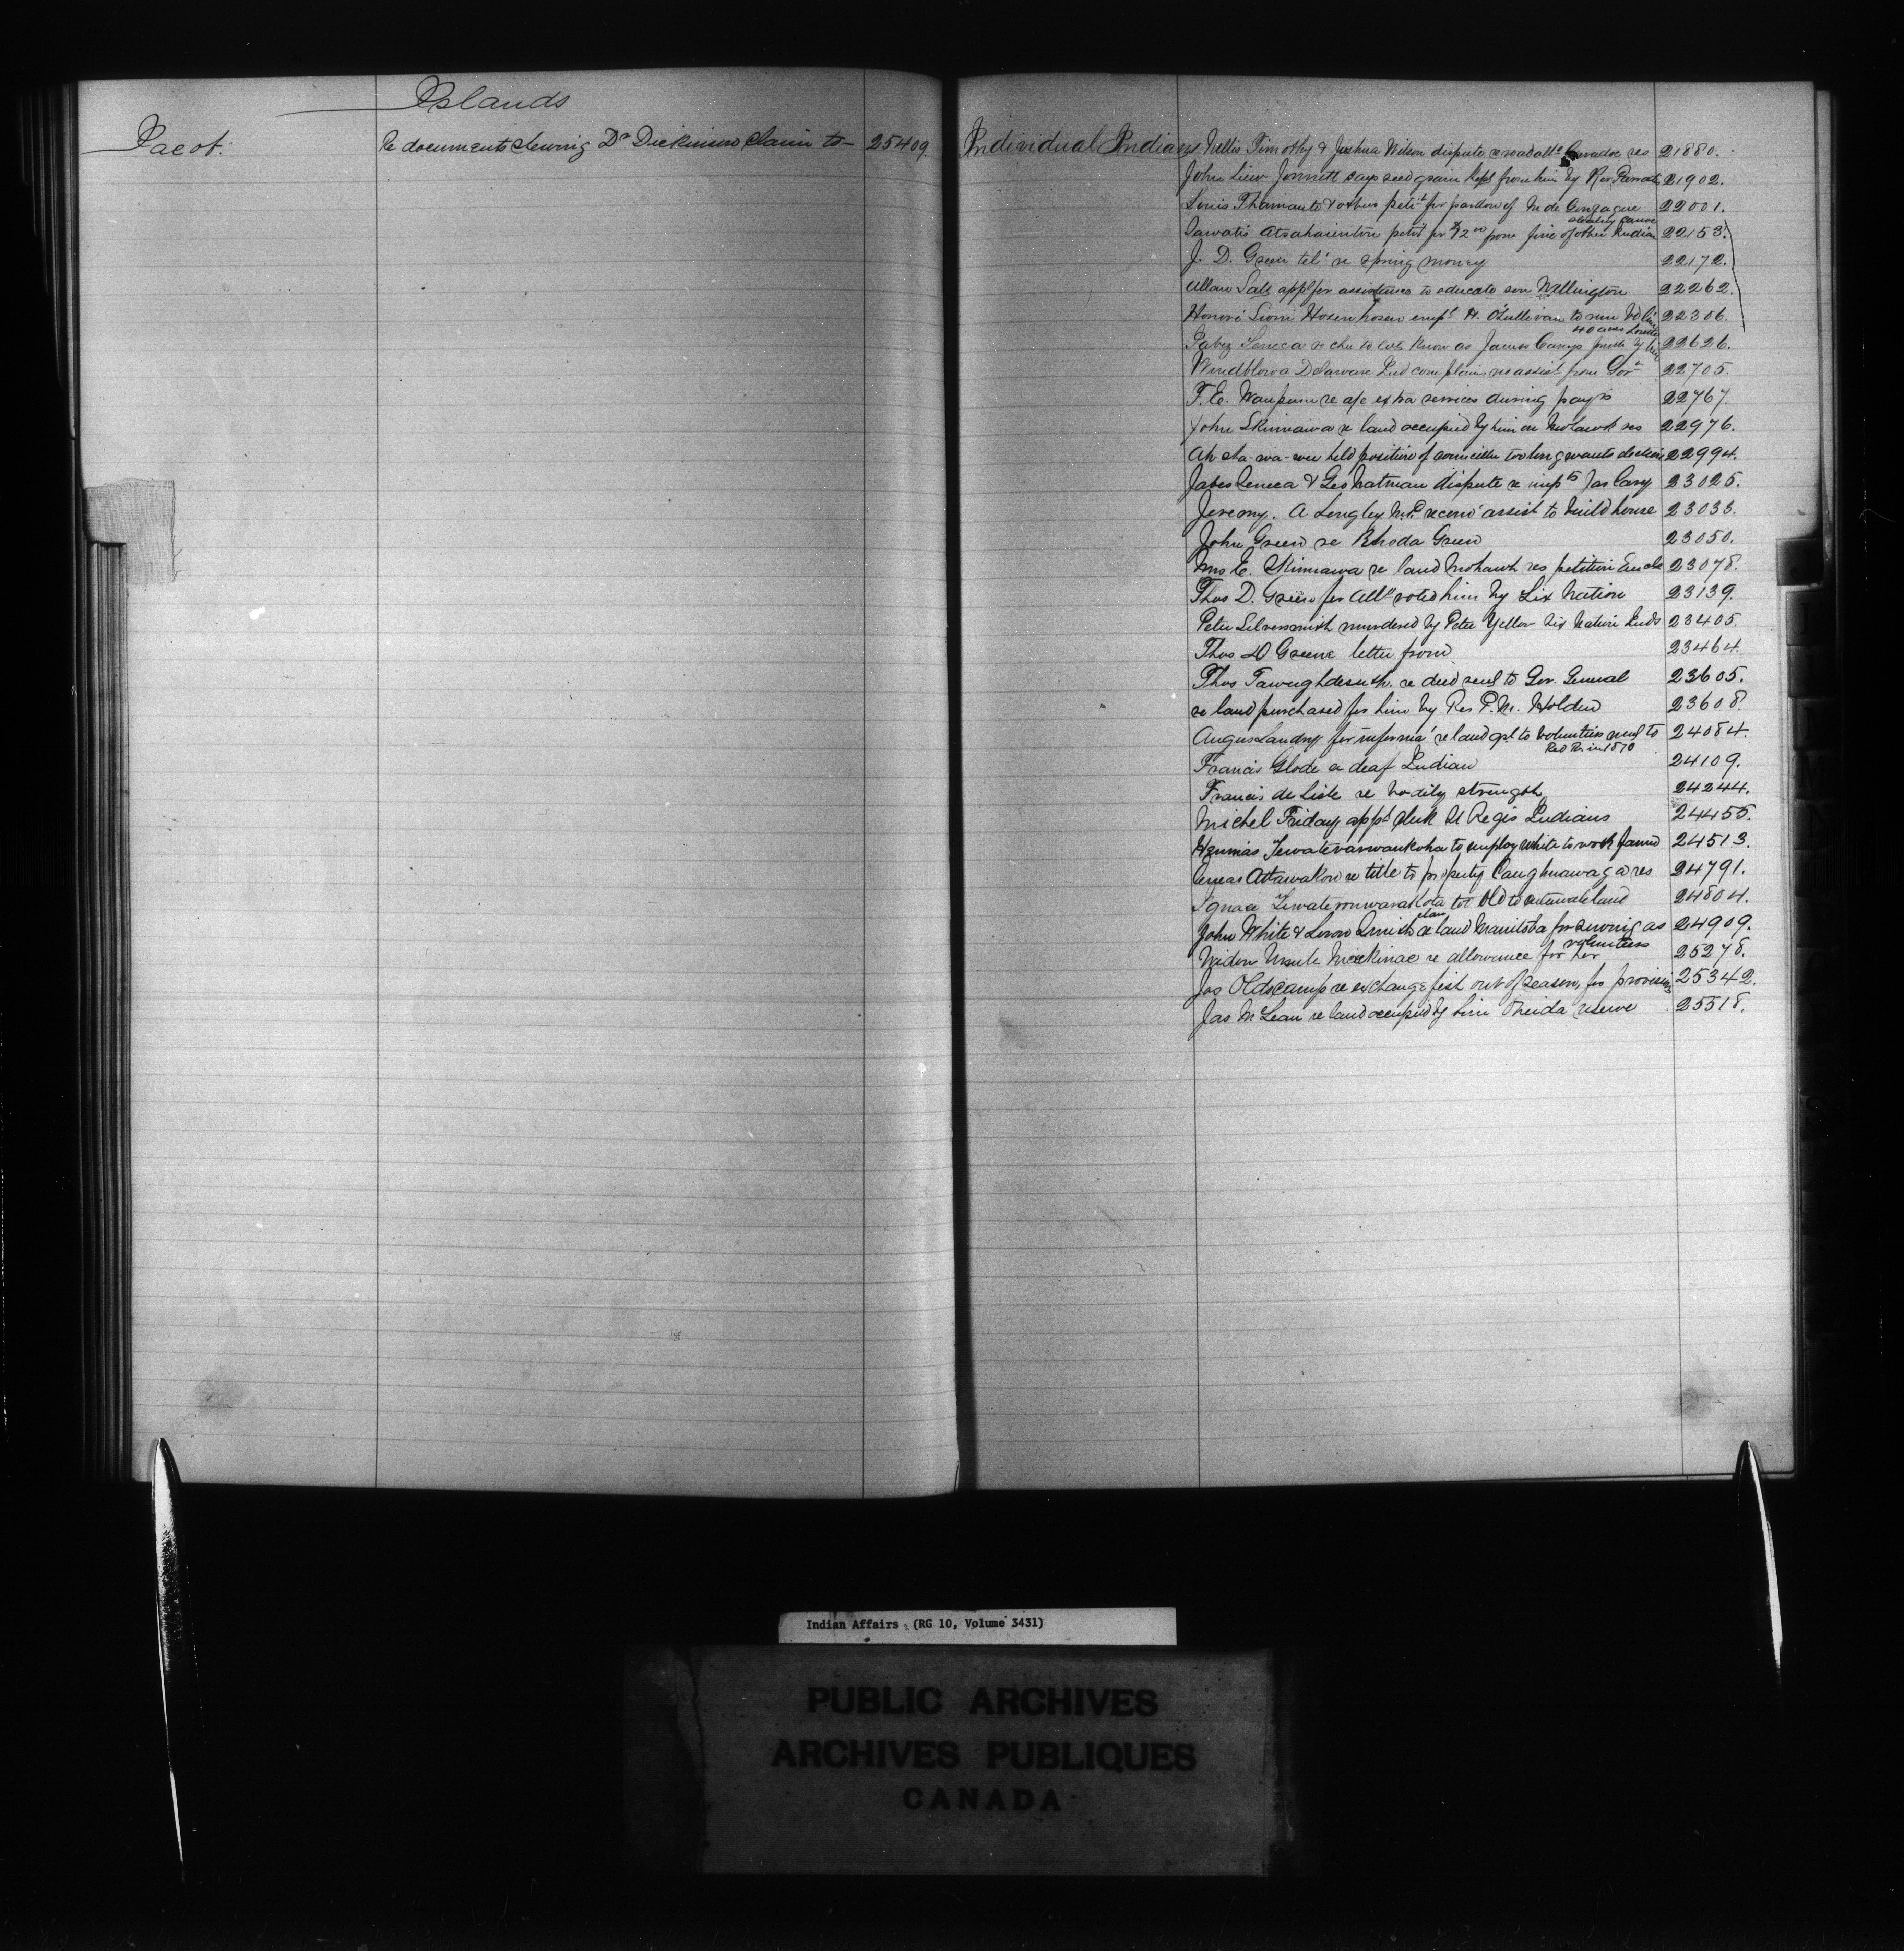 Islands
Jacot. Re documents shewing Dr Dickinson claim to 25409.
Individual Indians Nellis Timothy & Joshua Wilson dispute re road allce res 21880.
John Jonnett says seed grain kept from him by Rev 21902.
Louis Thamanto & others petit for pardon of M de Gonzague 22001.
stealing canoe
Sawatis petit for $12 00 from fine of other Indian 22153.
J. D. Green tel' re Spring money 22172.
Allan Salt appl for assistance to educate son Wellington 22262.
Honoré Sioni empt H. O'Sullivan to run 22306.
40 acres
Jabez Seneca re known as James Careys by him 22626.
Windblow a Delaware Ind complains no assist from Govt 22705.
F. E. Waupum re a/c extra services during payts 22767.
John Skinnawa re land occupied by him on Mohawk res 22976.
held position of councillor too long wants election 22994.
Jabes Seneca & Geo dispute re impts Jas Cary 23025.
Jeremy. A Longley M.P. recom' assist to build house 23033.
John Green re Rhoda Green 23050.
Mrs E. Skinnawa re land Mohawk res petition 23078.
Thos D. Green for Allce voted him by Six Nation 23139.
Peter Silversmith murdered by Peter Yellow Six Nation Inds 23405.
Thos D Greene letter from 23464.
Thos re deed send to Gov. General 23605.
re land purchased for him by Res P. M. Holden 23608.
Angus Landry for informa' re land gt to volunteers send to 24084.
Red R. in 1870
Francis Glode a deaf Indian 24109.
Francis de Lisle re bodily strength 24244.
Michel Friday appd clerk St Regis Indians 24455.
to employ white to work farm 24513.
re title to property Caughnawaga res 24791.
Ignace too old to cultivate land 24804.
John White & re land Manitoba for serving as 24909.
volunteers
Widow Mackinac re allowance for her 25278.
Jos Oldscamp re exchange fish out of season, for provisions 25342.
Jas McLean re land occupied by him Oneida reserve 25518.
Indian Affairs. (RG 10, Volume 3431)
PUBLIC ARCHIVES
ARCHIVES PUBLIQUES
CANADA